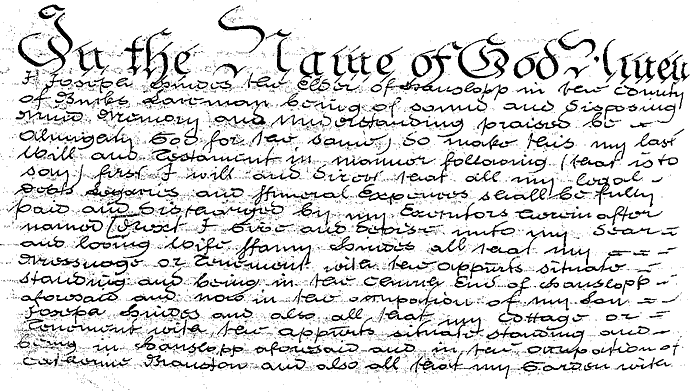 In the Name of God Amen
I Joseph Hindes the Elder of Hanslopp in the County
of Bucks Laceman being of sound and disposing
mind Memory and understanding praised be
Almighty God for the same, Do make this my last
Will and Testament in manner following (that is to
say) first I will and Direct that all my legal
Debts Legacies and ffuneral Expences shall be fully
paid and Discharged by my Executors herein after
named Next I Give and Devise unto my Dear
and loving Wife ffanny Hindes all that my
Messuage or Tenement with the appurts situate
standing and being in the Church End of Hanslopp
aforesaid and now in the occupation of my Son
Joseph Hindes and also all that my Cottage or
Tenement with the appurts situate standing and
being in Hanslopp aforesaid and in the Occupation of
Catherine and also all that my Garden with